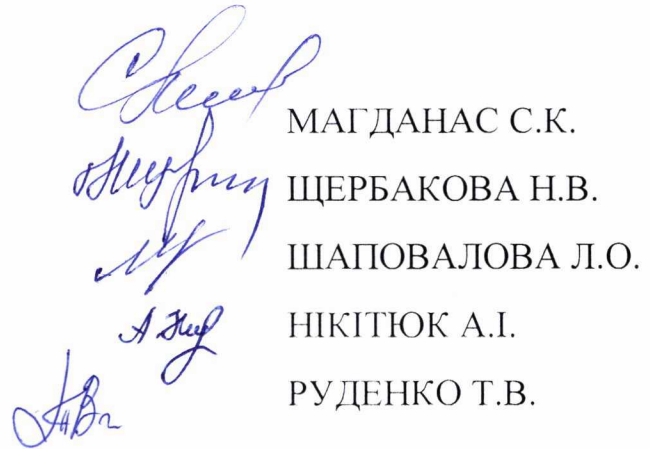 МАГДАНАС С.К.
ЩЕРБАКОВА Н.В.
ШАПОВАЛОВА Л.О.
НІКІТЮК А.І.
РУДЕНКО Т.В.